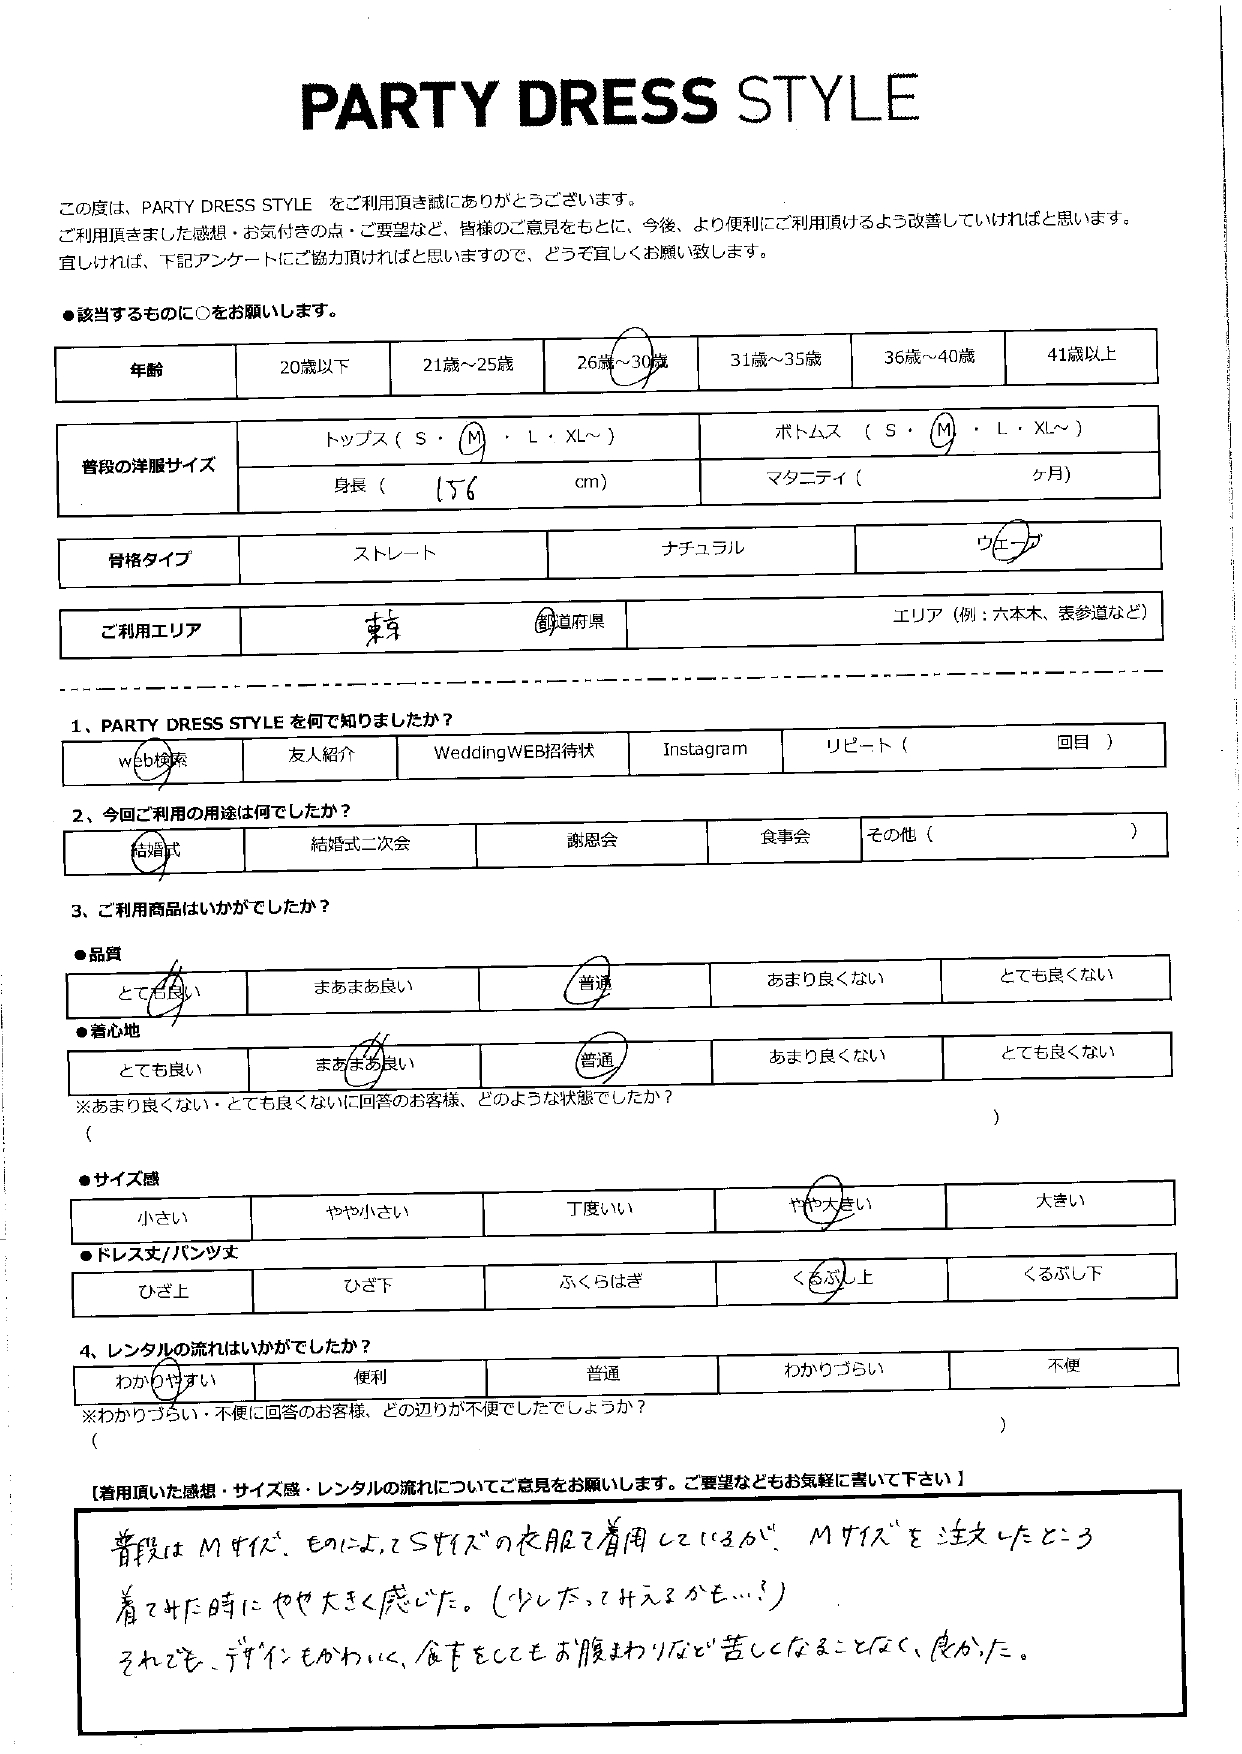 PARTY DRESS STYLE
この度は、PARTY DRESS STYLE をご利用頂き誠にありがとうございます。
ご利用頂きました感想・お気付きの点・ご要望など、皆様のご意見をもとに、今後、より便利にご利用頂けるよう改善していければと思います。
宜しければ、下記アンケートにご協力頂ければと思いますので、どうぞ宜しくお願い致します。
●該当するものに○をお願いします。
年齢 20歳以下 21歳～25歳 26歳～30歳 31歳～35歳 36歳～40歳 41歳以上
普段の洋服サイズ トップス ( S ・ M ・ L ・ XL～ ) ボトムス ( S ・ M ・ L ・ XL～ )
身長 ( 156 cm) マタニティ ( ヶ月)
骨格タイプ ストレート ナチュラル ウェーブ
ご利用エリア 東京 都道府県 エリア（例：六本木、表参道など）
1、PARTY DRESS STYLE を何で知りましたか？
web検索 友人紹介 WeddingWEB招待状 Instagram リピート ( 回目 )
2、今回ご利用の用途は何でしたか？
結婚式 結婚式二次会 謝恩会 食事会 その他 ( )
3、ご利用商品はいかがでしたか？
●品質
とても良い まあまあ良い 普通 あまり良くない とても良くない
●着心地
とても良い まあまあ良い 普通 あまり良くない とても良くない
※あまり良くない・とても良くないに回答のお客様、どのような状態でしたか？
( )
●サイズ感
小さい やや小さい 丁度いい やや大きい 大きい
●ドレス丈/パンツ丈
ひざ上 ひざ下 ふくらはぎ くるぶし上 くるぶし下
4、レンタルの流れはいかがでしたか？
わかりやすい 便利 普通 わかりづらい 不便
※わかりづらい・不便に回答のお客様、どの辺りが不便でしたでしょうか？
( )
【着用頂いた感想・サイズ感・レンタルの流れについてご意見をお願いします。ご要望などもお気軽に書いて下さい 】
普段はMサイズ、ものによってSサイズの衣服で着用しているが、Mサイズを注文したところ
着てみた時にやや大きく感じた。(少し太ってみえるかも…?)
それでも、デザインもかわいく、食事をしてもお腹まわりなど苦しくなることなく、良かった。